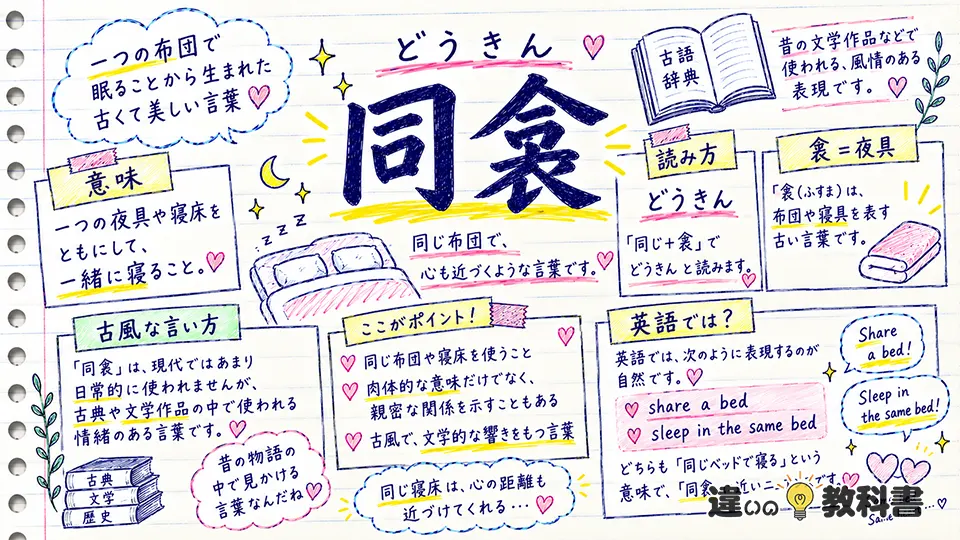 一つの布団で
眠ることから生まれた
古くて美しい言葉
どうきん
同衾
古語
辞典
昔の文学作品などで
使われる、風情のある
表現です。
意味
一つの夜具や寝床を
ともにして、
一緒に寝ること。
zzz
同じ布団で、
心も近づくような言葉です。
読み方
どうきん
「同じ+衾」で
どうきんと読みます。
衾=夜具
「衾(ふすま)は、
布団や寝具を表す
古い言葉です。
古風な言い方
「同衾」は、現代ではあまり
日常的に使われませんが、
古典や文学作品の中で使われる
情緒のある言葉です。
古典
文学
歴史
昔の物語の
中で見かける
言葉なんだね
ここがポイント!
同じ布団や寝床を使うこと
肉体的な意味だけでなく、
親密な関係を示すこともある
古風で、文学的な響きをもつ言葉
同じ寝床は、心の距離も
近づけてくれる…
英語では?
英語では、次のように表現するのが
自然です。
share a bed
sleep in the same bed
Share
a bed!
Sleep in
the same bed!
どちらも「同じベッドで寝る」という
意味で、「同衾 近いニ です。
違いの教科書